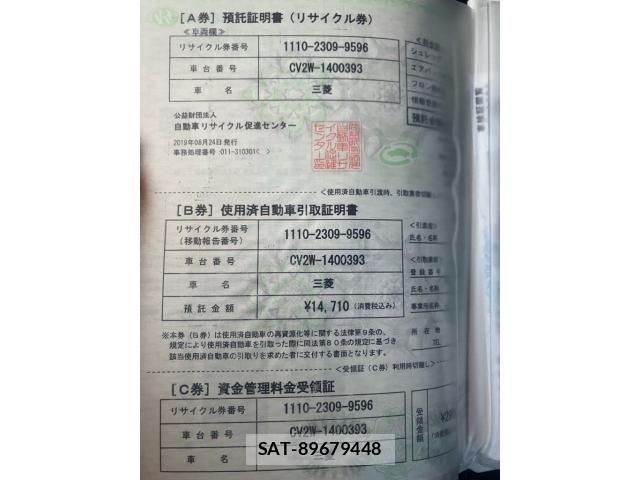 [A券] 預託証明書 (リサイクル券)
≪車両欄≫
リサイクル券番号 1110-2309-9596
車台番号 CV2W-1400393
車 名 三菱
シュレッ
エアバッ
フロン類
情報管理
預託金
公益財団法人
自動車リサイクル促進センター
2019年08月24日発行
事務処理番号:011-310301< >
<使用済自動車引渡時、引取業者切離し>
[B券] 使用済自動車引取証明書
リサイクル券番号
(移動報告番号) 1110-2309-9596
車台番号 CV2W-1400393
車 名 三菱
預託金額 ¥14,710 (消費税込み)
<引渡者>
氏名・名称
<引取業者>
登録番号
氏名・名称
事業所名称
所在地
TEL
※本券 (B券) は使用済自動車の再資源化等に関する法律第9条の、
規定により使用済自動車を引取った際に同法第80条の規定に基づき
該当使用済自動車の引取りを求めた者に交付する書面となります。
<受領証 (C券) 利用時切離し>
[C券] 資金管理料金受領証
リサイクル券番号 1110-2309-9596
車台番号 CV2W-1400393
車 名 三菱
受領金額
¥29
(消費
SAT-89679448